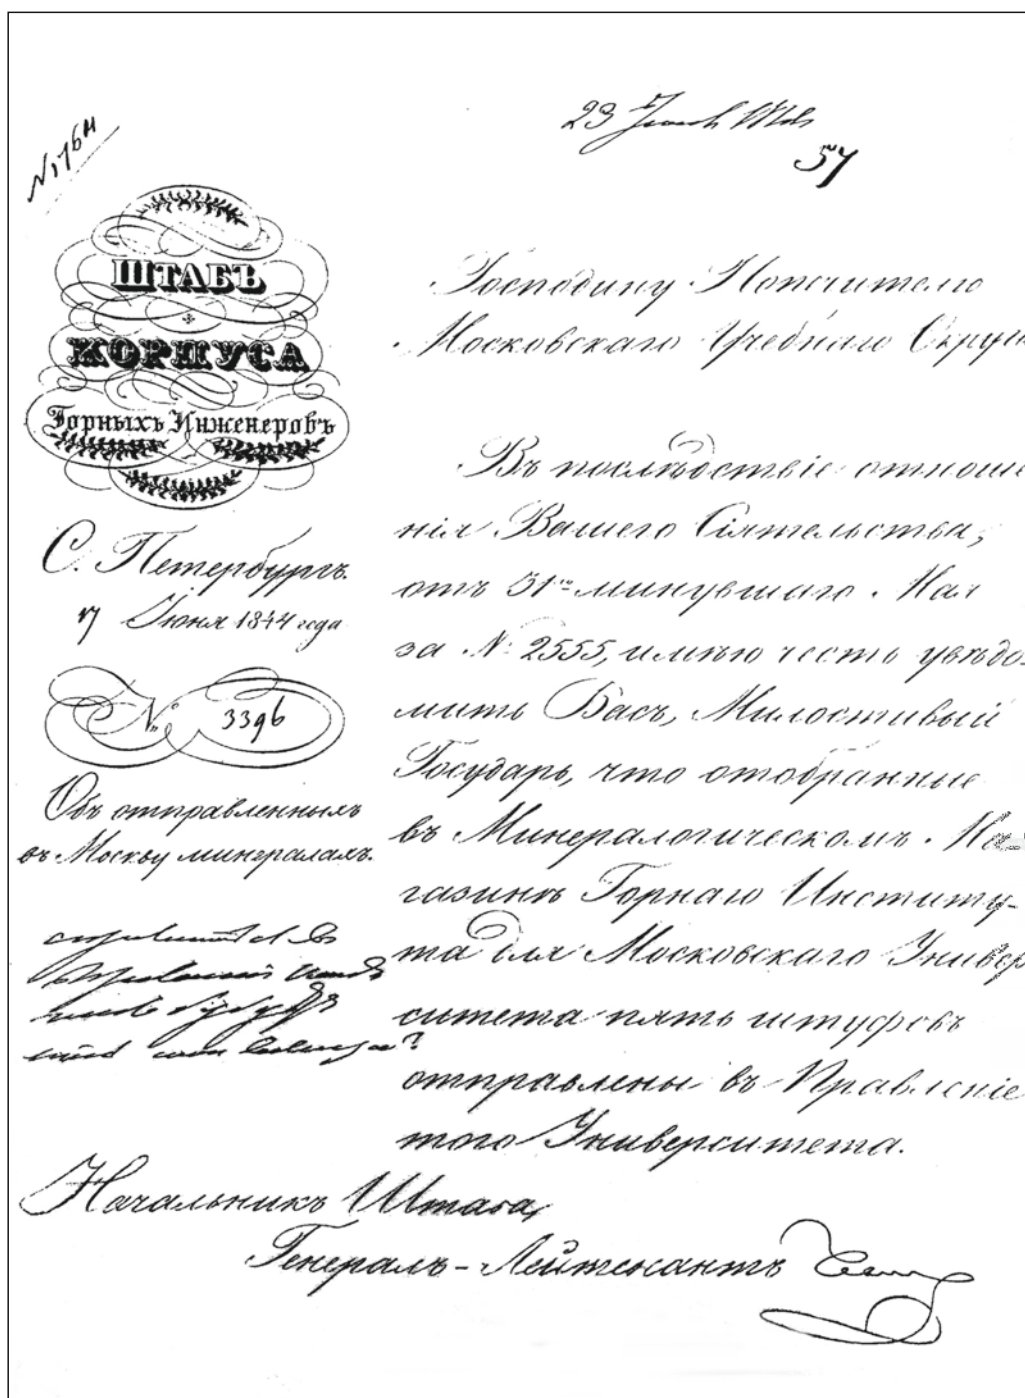 № 1764
23
57
ШТАБЪ
КОРПУСА
Горныхъ Инженеровъ
С. Петербургъ.
7 Іюня 1844 года
№ 3396
Объ отправленныхъ
въ Москву минералахъ.
Господину Попечителю
Московскаго Учебнаго Округа
Въ послѣдствіе отноше
нія Вашего Сіятельства,
отъ 31го минувшаго Мая
за № 2555, имѣю честь увѣдо-
мить Васъ, Милостивый
Государь, что отобранные
въ Минералогическомъ Ма-
газинѣ Горнаго Институ-
та для Московскаго Универ
ситета пять штуфовъ
отправлены въ Правленіе
того Университета.
Начальникъ Штаба,
Генералъ-Лейтенантъ